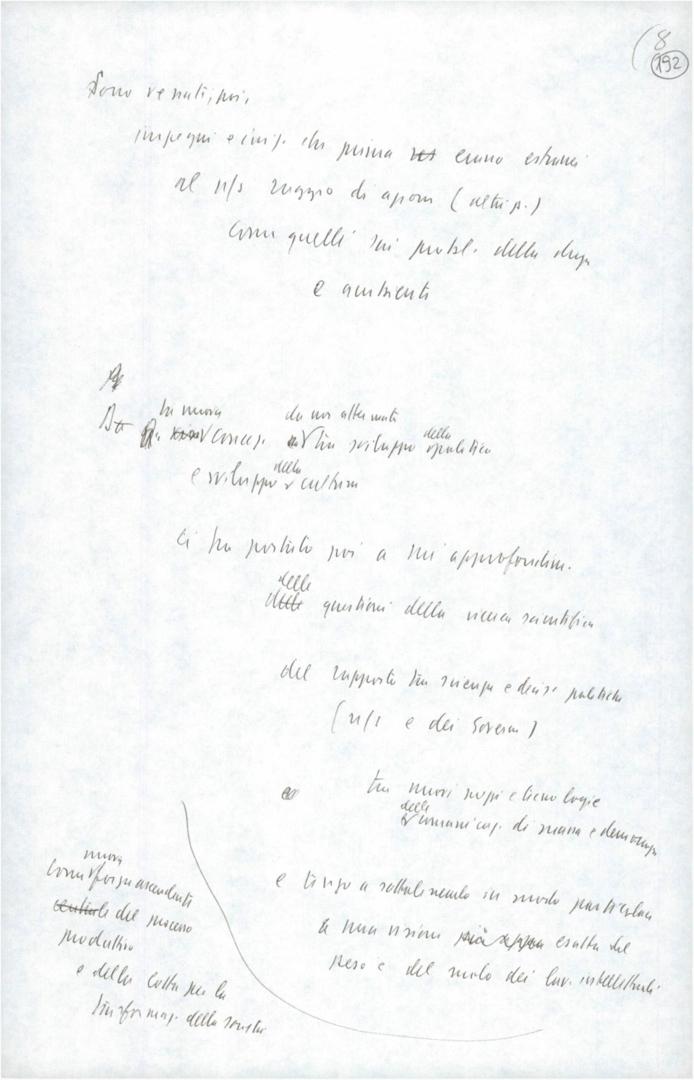 8
192
Sono venuti, poi,
impegni e iniz. che prima erano estranei
al n/s raggio di azione (altri p.)
come quelli sui probl. della droga
e ambiente
La nuova da noi affermata
concez. tra sviluppo della politica
e sviluppo della cultura
ci ha portato poi a un approfondim.
delle
delle questioni della ricerca scientifica
del rapporto tra scienza e decis. politiche
(n/s e dei Governi)
tra nuovi mezzi e tecnologie
delle comunicaz. di massa e democrazia
e tengo a sottolinearlo in modo particolare
a una visione più esatta del
peso e del ruolo dei lav. intellettuali
nuova
come forza ascendente
centrale del processo
produttivo
e della lotta per la
trasformaz. della società